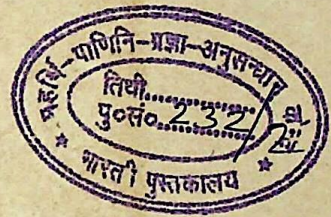 महर्षि-पाणिनि-प्रज्ञा-अनुसन्धान
तिथी..............
पु०सं० 232/
* भारती पुस्तकालय *